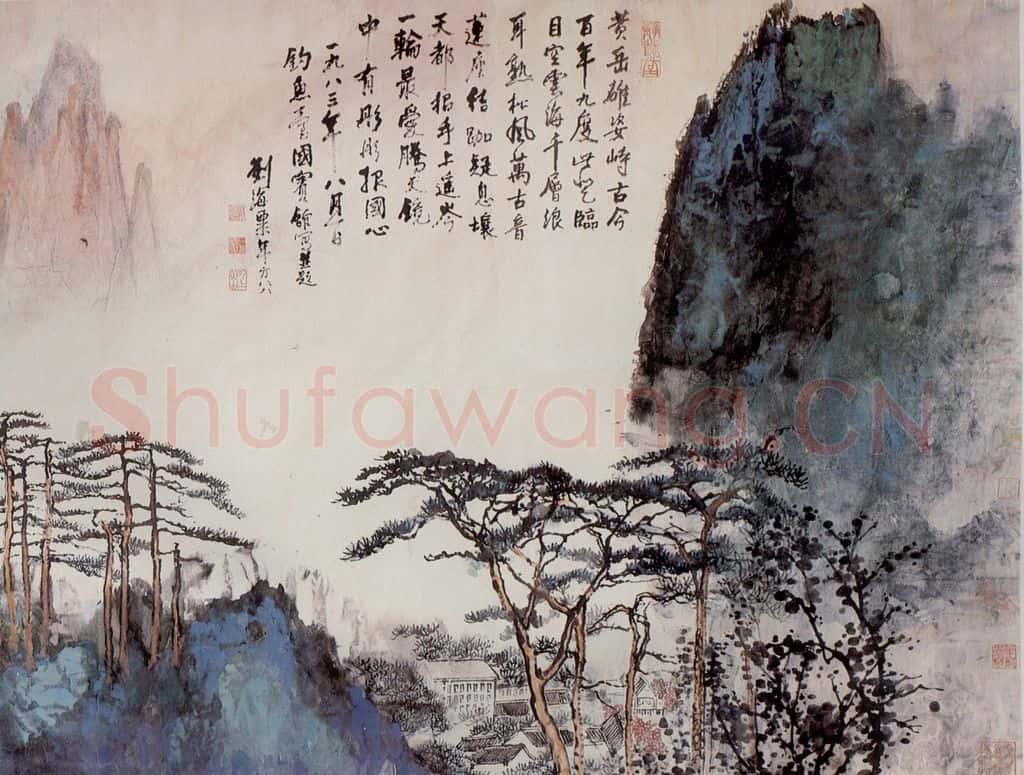 黄岳雄姿峙古今
百年九度此登臨
目空雲海千層浪
耳熟松風萬古音
蓮座結跏疑息壤
天都招手上遥岑
一輪最愛騰天鏡
中有彤彤報國心
一九八三年八月日
釣魚臺國賓館寫並題
劉海粟年方八八
Shufawang.CN